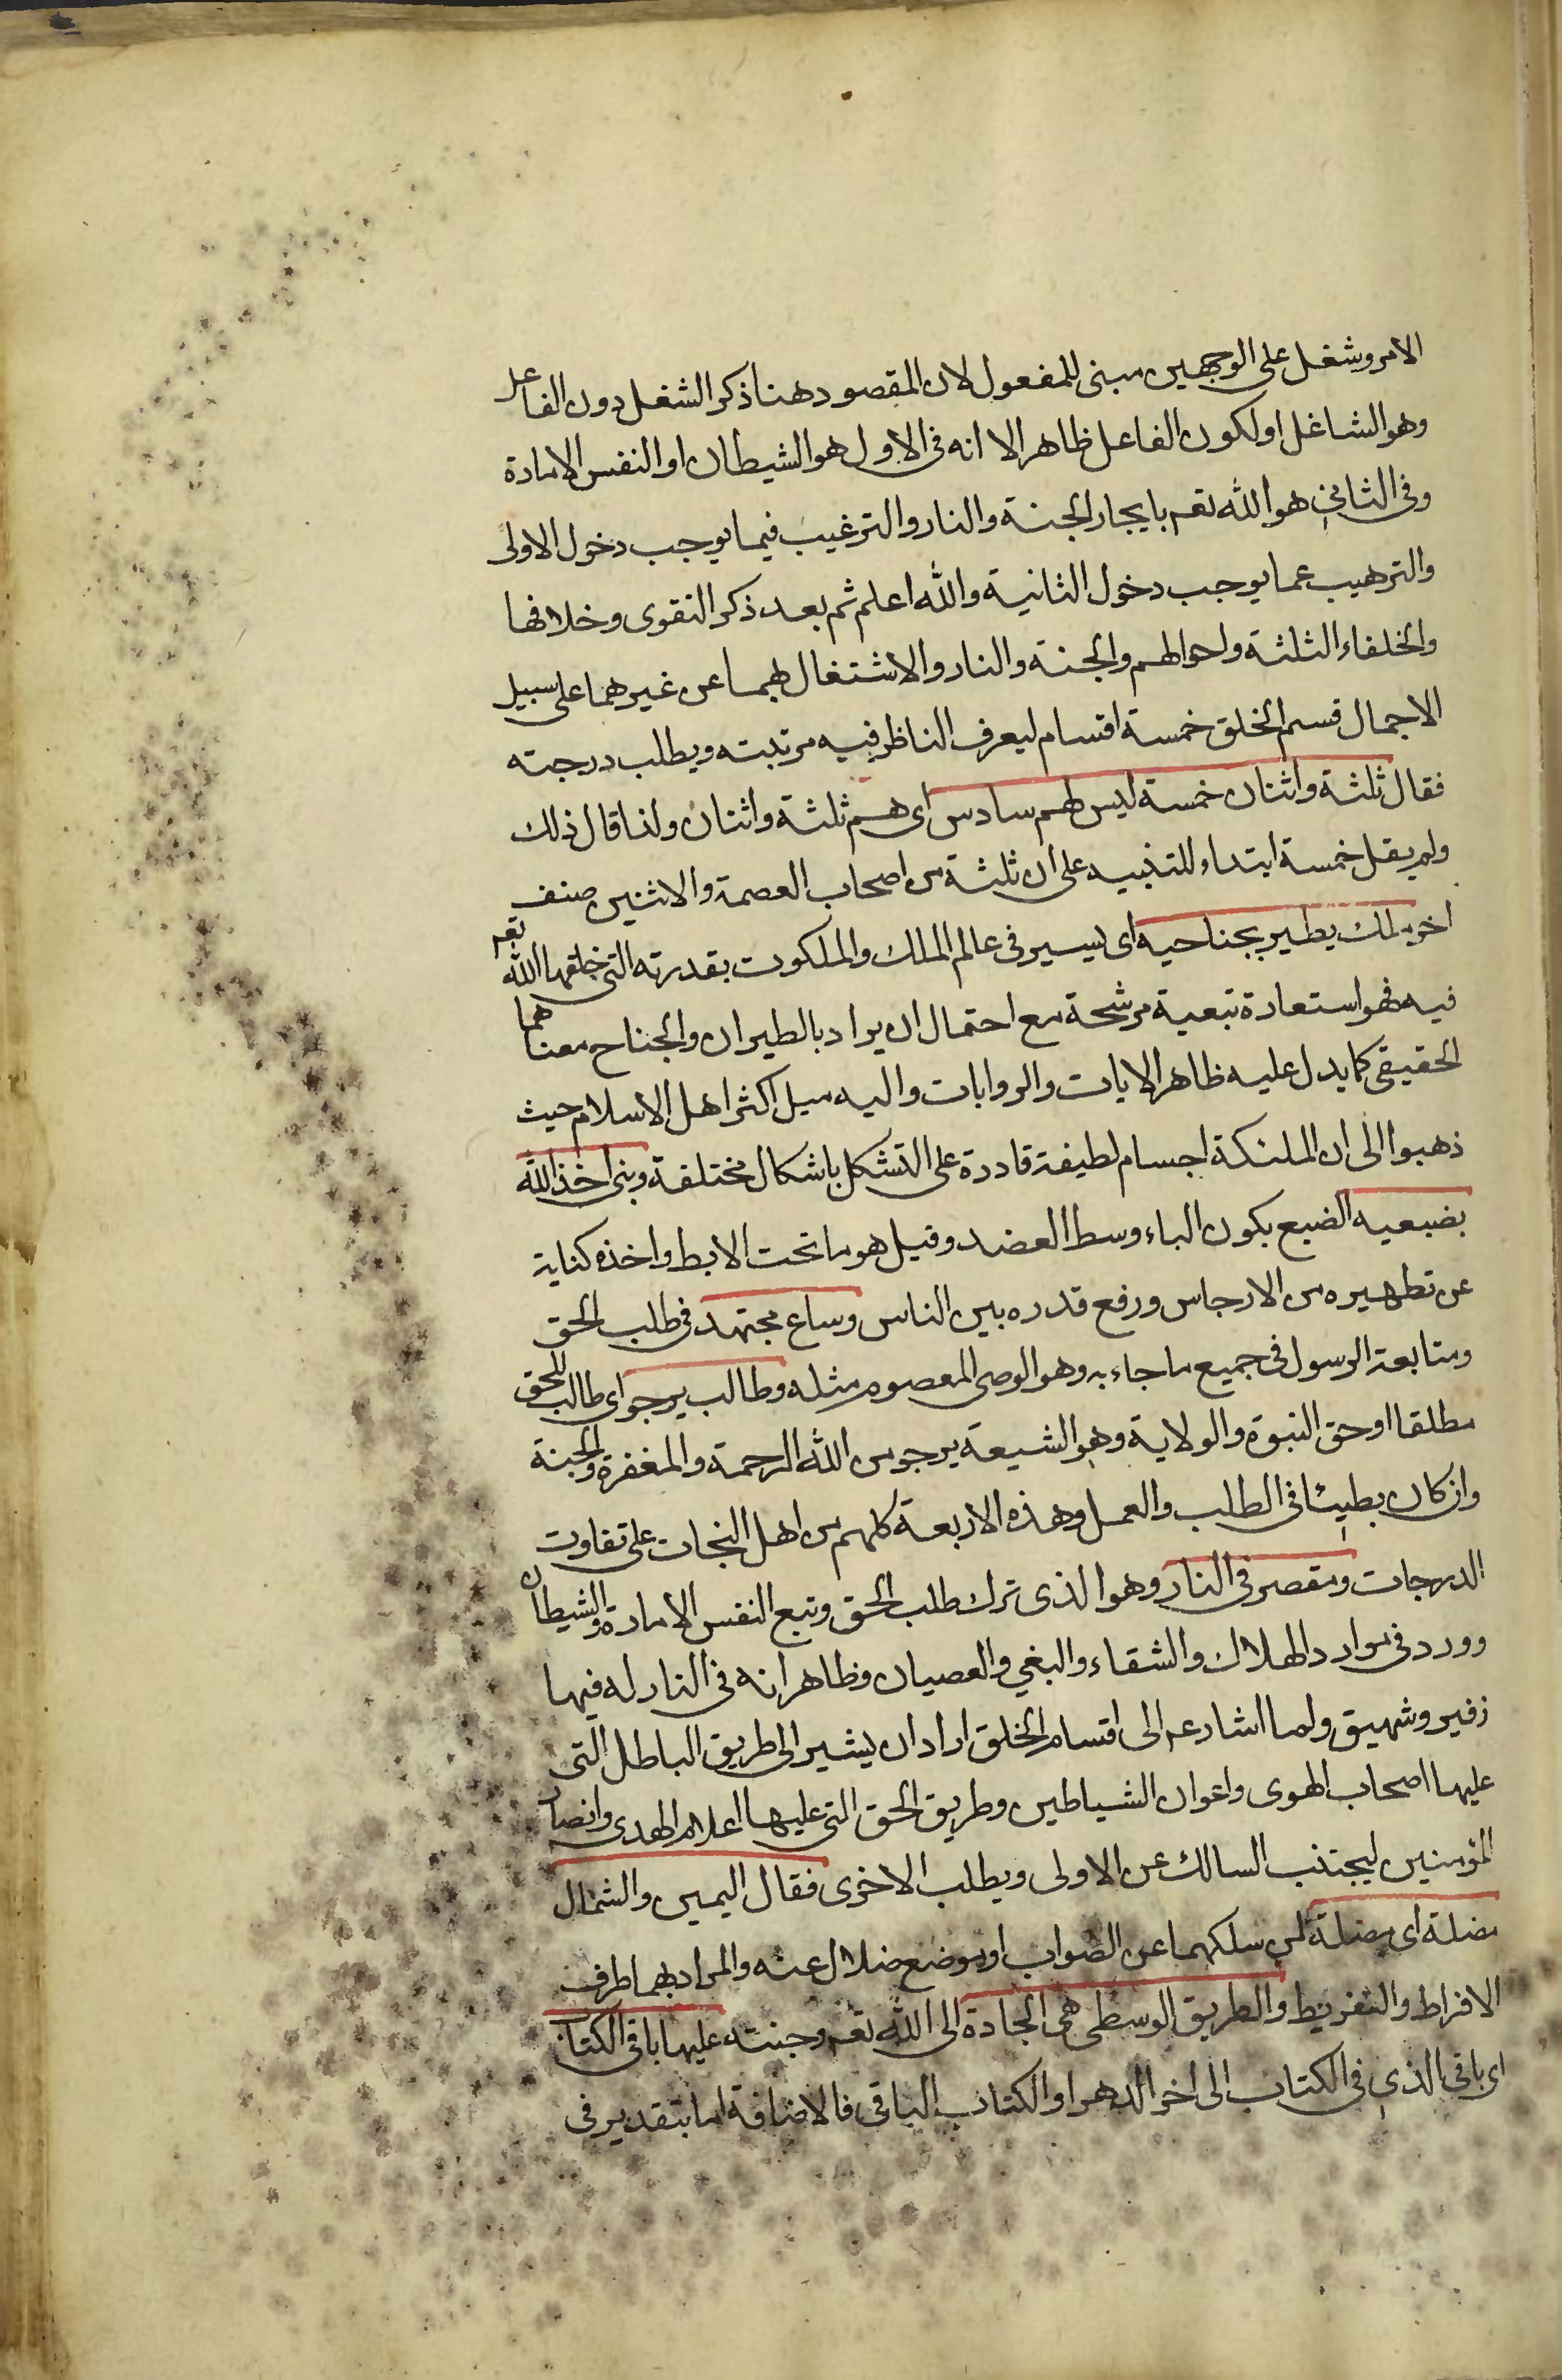 الامر وشغل على الوجهين مبنى للمفعول لان المقصود هنا ذكر الشغل دون الفاعل
وهو الشاغل او لكون الفاعل ظاهرا الا انه فى الاول هو الشيطان او النفس الامارة
وفى الثانى هو الله تعم بايجار الجنة والنار والترغيب فيما يوجب دخول الاولى
والترهيب عما يوجب دخول الثانية والله اعلم ثم بعد ذكر التقوى وخلافها
والخلفاء الثلثة واحوالهم والجنة والنار والاشتغال بهما عن غيرهما على سبيل
الاجمال قسم الخلق خمسة اقسام ليعرف الناظر فيه مرتبته ويطلب درجته
فقال ثلثة واثنان خمسة ليس لهم سادس اى هم ثلثة واثنان ولذا قال ذلك
ولم يقل خمسة ابتداء للتنبيه على ان ثلثة من اصحاب العصمة والاثنين صنف
اخر ملك يطير بجناحيه اى يسير فى عالم الملك والملكوت بقدرته التى خلقها الله تعم
فيه فهو استعارة تبعية مرشحة مع احتمال ان يراد بالطيران والجناح معناهما
الحقيقى كما يدل عليه ظاهر الايات والروايات واليه ميل اكثر اهل الاسلام حيث
ذهبوا الى ان الملئكة اجسام لطيفة قادرة على التشكل باشكال مختلفة ونبى اخذ الله
بضبعيه الضبع بكون الباء وسط العضد وقيل هو ما تحت الابط واخذه كناية
عن تطهيره من الارجاس ورفع قدره بين الناس وساع مجتهد فى طلب الحق
ومتابعة الرسول فى جميع ما جاء به وهو الوصى المعصوم مثله وطالب يرجو اى طالب للحق
مطلقا او حق النبوة والولاية وهو الشيعة يرجو من الله الرحمة والمغفرة والجنة
وان كان بطيئا فى الطلب والعمل وهذه الاربعة كلهم من اهل النجات على تفاوت
الدرجات ومقصر فى النار وهو الذى ترك طلب الحق وتبع النفس الامارة والشيطان
وورد فى موارد الهلاك والشقاء والبغي والعصيان وظاهر انه فى النار له فيها
زفير وشهيق ولما اشار عم الى اقسام الخلق اراد ان يشير الى طريق الباطل التى
عليها اصحاب الهوى واعوان الشياطين وطريق الحق التى عليها اعلام الهدى وانصار
المؤمنين ليجتنب السالك عن الاولى ويطلب الاخرى فقال اليمين والشمال
مضلة اى مضلة لمن سلكهما عن الصواب او موضع ضلال عنه والمراد بهما طرف
الافراط والتفريط والطريق الوسطى هى الجادة الى الله تعم وجنته عليها باقى الكتاب
اى باقى الذى فى الكتاب الى اخر الدهر او الكتاب الباقى فالاضافة اما بتقدير فى